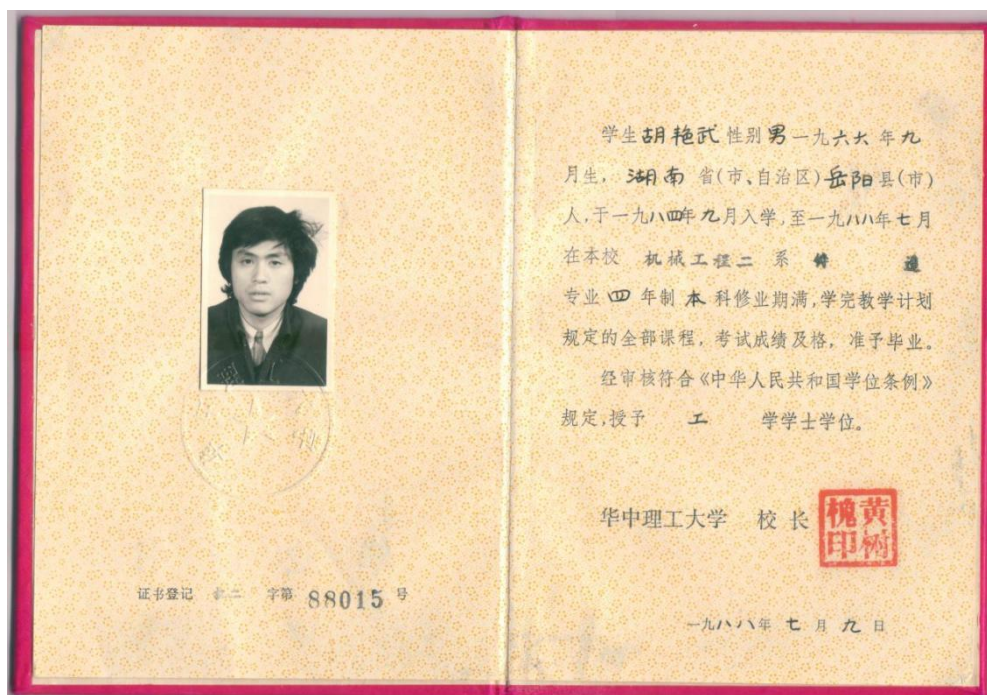 证书登记 二 字第 88015 号
学生胡艳武性别男一九六六年九
月生，湖南省(市、自治区)岳阳县(市)
人,于一九八四年九月入学,至一九八八年七月
在本校 机械工程二 系
专业四年制本科修业期满,学完教学计划
规定的全部课程，考试成绩及格，准予毕业。
经审核符合《中华人民共和国学位条例》
规定,授予 工 学学士学位。
华中理工大学 校长
黄树
槐印
一九八八年七月九日